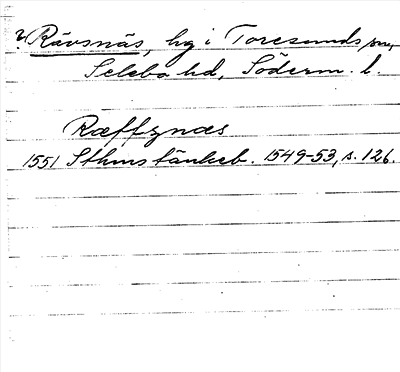 ? Rävsnäs, hg i Toresunds sn,
Selebo hd, Söderm. l.
Ræffznæs
1551 Sthms tänkeb. 1549-53, s. 126.